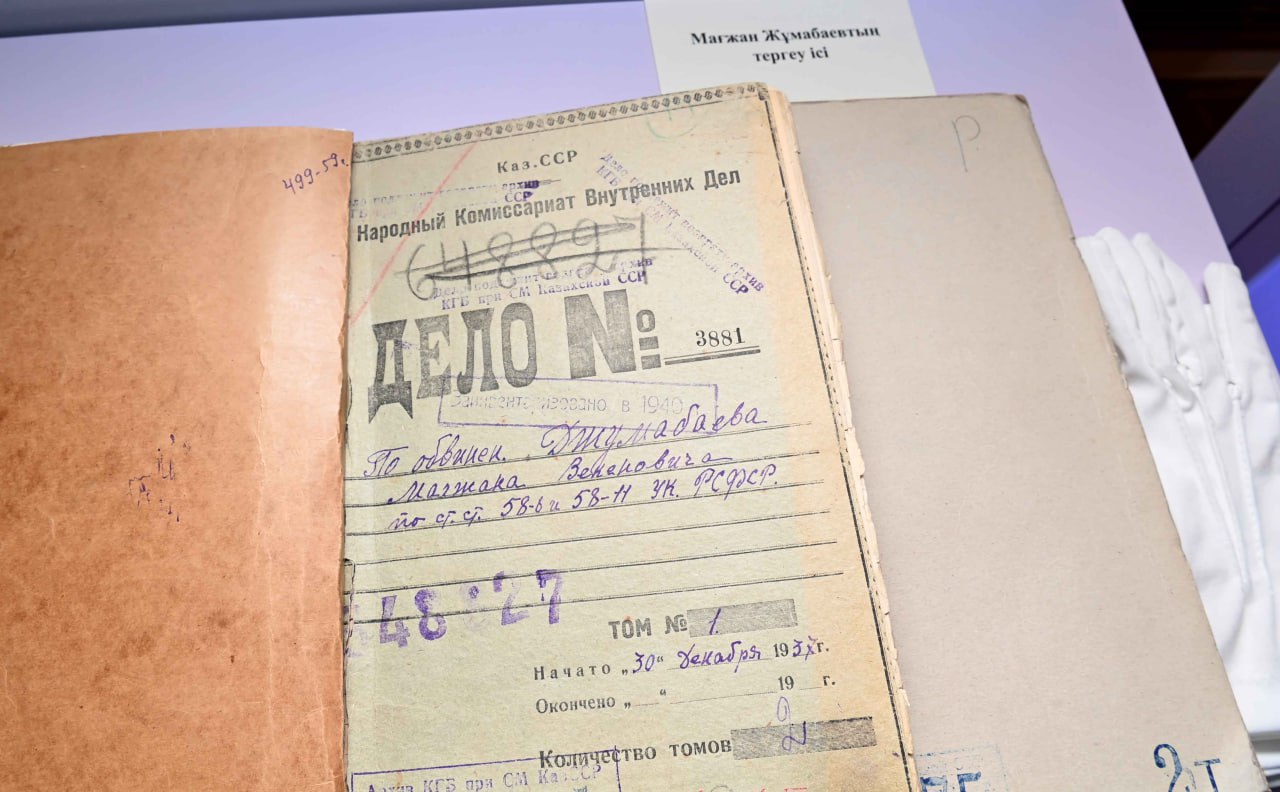 Мағжан Жұмабаевтың
тергеу ісі
499-59г.
Р
Каз.ССР
архив
ССР
Дело подлежит возврату архив
КГБ при СМ Казахской ССР
Народный Комиссариат Внутренних Дел
648827
Дело подлежит архив
КГБ при СМ Казахской ССР
ДЕЛО №
3881
Заинвентаризовано в 1940
По обвинен. Джумабаева
Магжана
по ст.ст. 58-6 и 58-11 УК. РСФСР.
48 27
ТОМ № 1.
Начато „30“ Декабря 1937г.
Окончено „ “ 19 г.
2
Количество томов 2
Архив КГБ при СМ КазССР
2 т